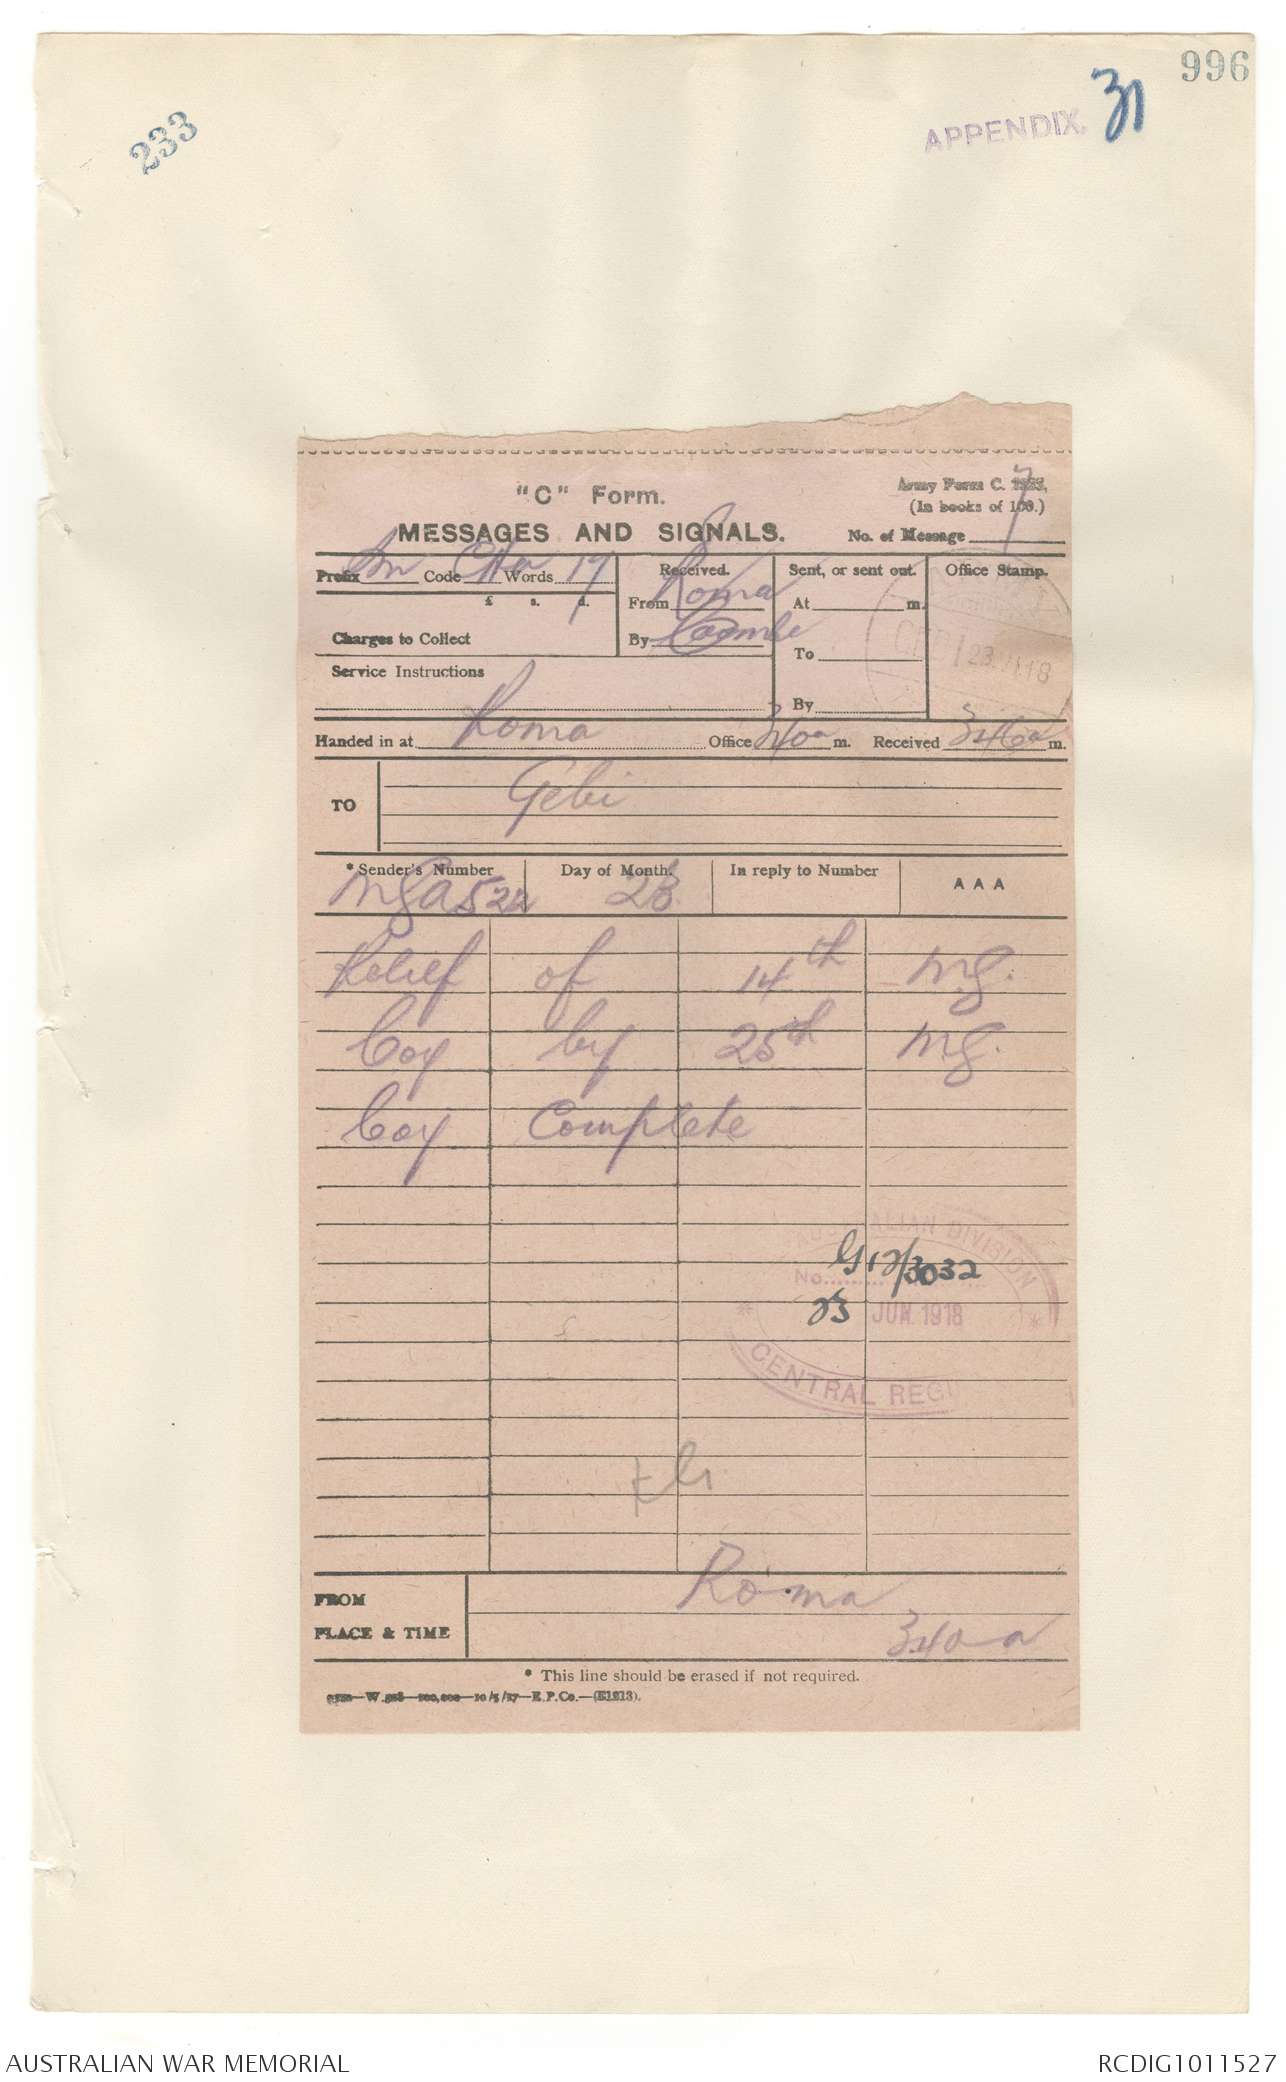 996
233
APPENDIX. 31
"C" Form.
Army Form C. 2123.
(In books of 100.)
MESSAGES AND SIGNALS.
No. of Message 7
Prefix Sm Code Words 19
£ s. d.
Charges to Collect
Service Instructions
Received.
From Roma
By Coombe
Sent, or sent out.
At m.
To
By
Office Stamp.
23.VI.18
Handed in at Roma Office 340a m. Received 346a m.
TO Gebi
* Sender's Number Day of Month. In reply to Number AAA
MGA522 23
Relief of 14th M.G.
Coy by 25th M.G.
Coy Complete
AUSTRALIAN DIVISION
No. G12/3032
23 JUN. 1918
CENTRAL REGI
FROM Roma
PLACE & TIME 340a
* This line should be erased if not required.
100,000—10/5/17—E.P.Co.—(E1213).
AUSTRALIAN WAR MEMORIAL
RCDIG1011527